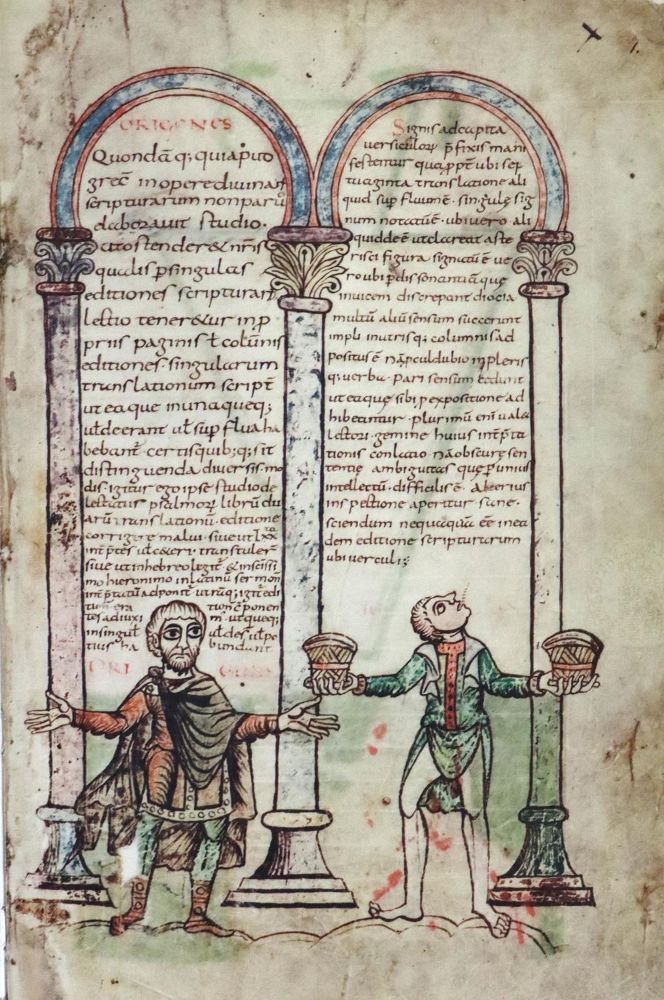 ORIGENES
Quondā q; qui aputo
grec̄ in opere divinar̄
scripturarum non parū
elaboravit studio.
cito stender& nr̄is
qualis p singulas
editiones scripturar̄
lectio tener&ur in p
priis paginis ł colūnis
editiones singularum
translationum script̄
ut ea que in una queq;
uł deerant uł supflua ha
bebant. certis quib;q; sit
distinguenda diversis mo
dis. igitur ego ipse studio de
lectatus psalmor̄ librū du
arū translationū. editione
corrigere malui. sive ut lxx
int̄ptes uł c&eri. transtuler̄
sive ut in hebreo legit̄. &
mo hieronimo in latinū ser mon
int̄ptatū adponit̄. utrūq; igit̄ edi
tion
tionē ponem
tes adiuxi
m. ut queq;
in singul
uł desuł pe
bundant
ORI
Signis ad capita
versiculor̄ p̄fixis mani
festentur que pp̄t ubi sep
tuaginta translatione ali
quid sup fluum ē. singulę sig
num notatū ē. ubi vero ali
quid deē ut clareat aste
risci figura signatū ē ve
ro ubi p dissonantiā que
invicem discrepant diocia
multū aliū sensum succerunt
impli utrisq; columnis ad
positus ē nā pcul dubio in pleris
q; verba. pari sensum tedunt
ut ea que sibi p expositione ad
hibeantur. plurimū eni vale&
lectori. gemine huius int̄pta
tionis conlatio nā obscurę sen
tentię ambiguitas quę p unius
intellectū. difficilis ē. alterius
inspectione aperitur sane.
sciendum nequaquā eē in ea
dem editione scripturarum